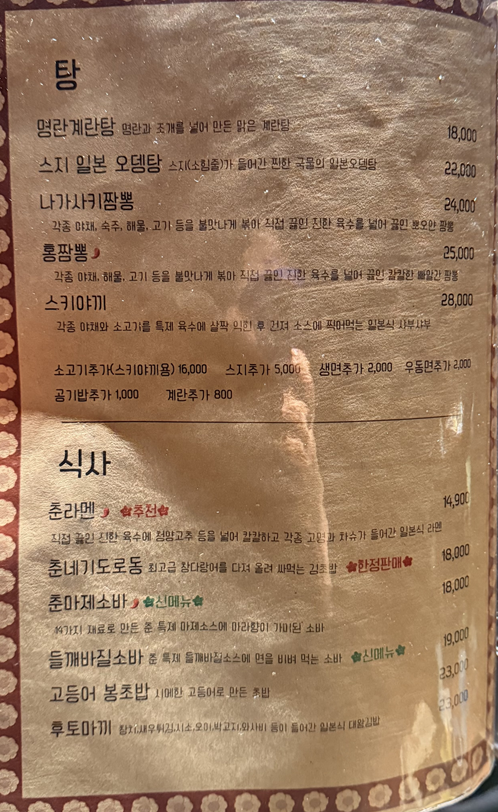 탕
명란계란탕 명란과 조개를 넣어 만든 맑은 계란탕 18,000
스지 일본 오뎅탕 스지(소힘줄)가 들어간 찐한 국물의 일본오뎅탕 22,000
나가사키짬뽕 24,000
각종 야채, 숙주, 해물, 고기 등을 불맛나게 볶아 직접 끓인 진한 육수를 넣어 끓인 뽀오얀 짬뽕
홍짬뽕 25,000
각종 야채, 해물, 고기 등을 불맛나게 볶아 직접 끓인 진한 육수를 넣어 끓인 칼칼한 빠알간 짬뽕
스키야끼 28,000
각종 야채와 소고기를 특제 육수에 살짝 익힌 후 건져 소스에 찍어먹는 일본식 샤부샤부
소고기추가(스키야끼용) 16,000 스지추가 5,000 생면추가 2,000 우동면추가 2,000
공기밥추가 1,000 계란추가 800
식사
춘라멘 추천 14,900
직접 끓인 진한 육수에 청양고추 등을 넣어 칼칼하고 각종 고명과 차슈가 들어간 일본식 라멘
춘네기도로동 최고급 참다랑어를 다져 올려 싸먹는 김초밥 한정판매 18,000
춘마제소바 신메뉴 18,000
14가지 재료로 만든 춘 특제 마제소스에 마라향이 가미된 소바
들깨바질소바 춘 특제 들깨바질소스에 면을 비벼 먹는 소바 신메뉴 19,000
고등어 봉초밥 시메한 고등어로 만든 초밥 23,000
후토마끼 참치,새우튀김,시소,오이,박고지,와사비 등이 들어간 일본식 대왕김밥 23,000